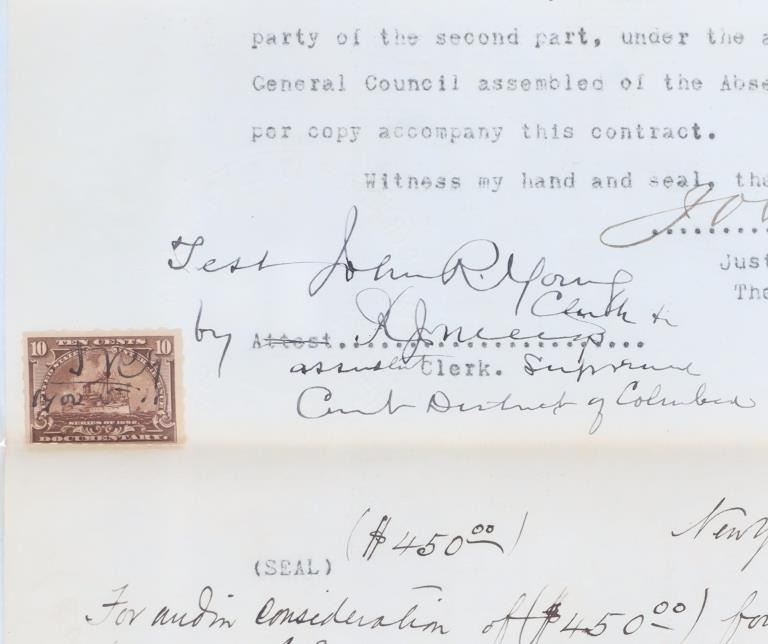 party of the second part, under the a
General Council assembled of the Abse
per copy accompany this contract.
Witness my hand and seal, the
Just
The
Test John R. Young
Clerk
by Attest
assistant Clerk. Supreme
Court District of Columbia
10 TEN CENTS 10
SERIES OF 1898.
DOCUMENTARY.
($450.00)
New Y
(SEAL)
For and in consideration of ($450.00) fou